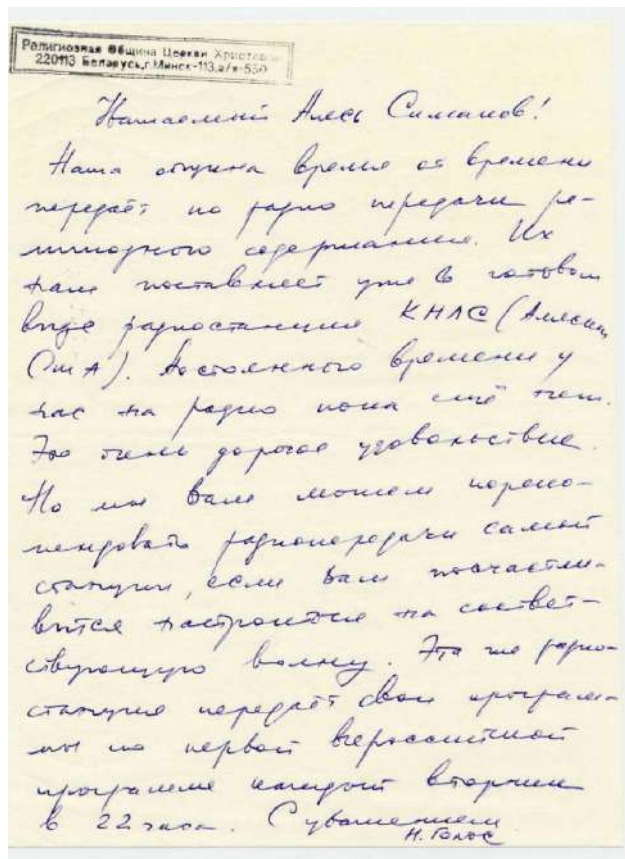 Религиозная Община Церкви Христовой
220113 Беларусь, г. Минск-113, а/я-550
Уважаемый Алесь Симаков!
Наша община время от времени
передаёт по радио передачи ре-
лигиозного содержания. Их
нам поставляет уже в готовом
виде радиостанция КНЛС (Аляска
США). Постоянного времени у
нас на радио пока ещё нет.
Это очень дорогое удовольствие.
Но мы Вам можем пореко-
мендовать радиопередачи самой
станции, если Вам посчастли-
вится настроиться на соответ-
ствующую волну. Эта же радио-
станция передаёт свои програм-
мы по первой всероссийской
программе каждый вторник
в 22 часа. С уважением
Н. Голос